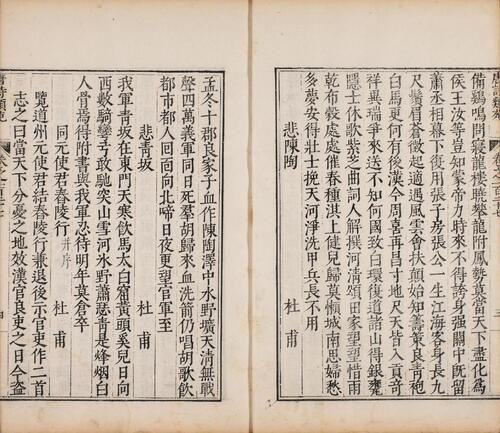 備鷄鳴問寢龍樓曉攀龍附鳳勢莫當天下盡化為
侯王汝等豈知蒙帝力時來不得誇身强關中旣留
蕭丞相幕下復用張子房張公一生江海客身長九
尺鬚眉蒼徵起適遇風雲會扶顛始知籌策良青袍
白馬更何有後漢今周喜再昌寸地尺天皆入貢奇
祥異瑞爭來送不知何國致白環復道諸山得銀甕
隱士休歌紫芝曲詞人解撰河清頌田家望望惜雨
乾布穀處處催春種淇上健兒歸莫懶城南思婦愁
多夢安得壯士挽天河淨洗甲兵長不用
悲陳陶 杜甫
孟冬十郡良家子血作陳陶澤中水野曠天清無戰
聲四萬義軍同日死羣胡歸來血洗箭仍唱胡歌飲
都市都人回面向北啼日夜更望官軍至
悲青坂 杜甫
我軍青坂在東門天寒飲馬太白窟黃頭奚兒日向
西數騎彎弓敢馳突山雪河氷野蕭瑟青是烽烟白
人骨焉得附書與我軍忍待明年莫倉卒
同元使君舂陵行并序 杜甫
覽道州元使君結舂陵行兼退後示官吏作二首
志之曰當天下分憂之地效漢官良吏之目今盜